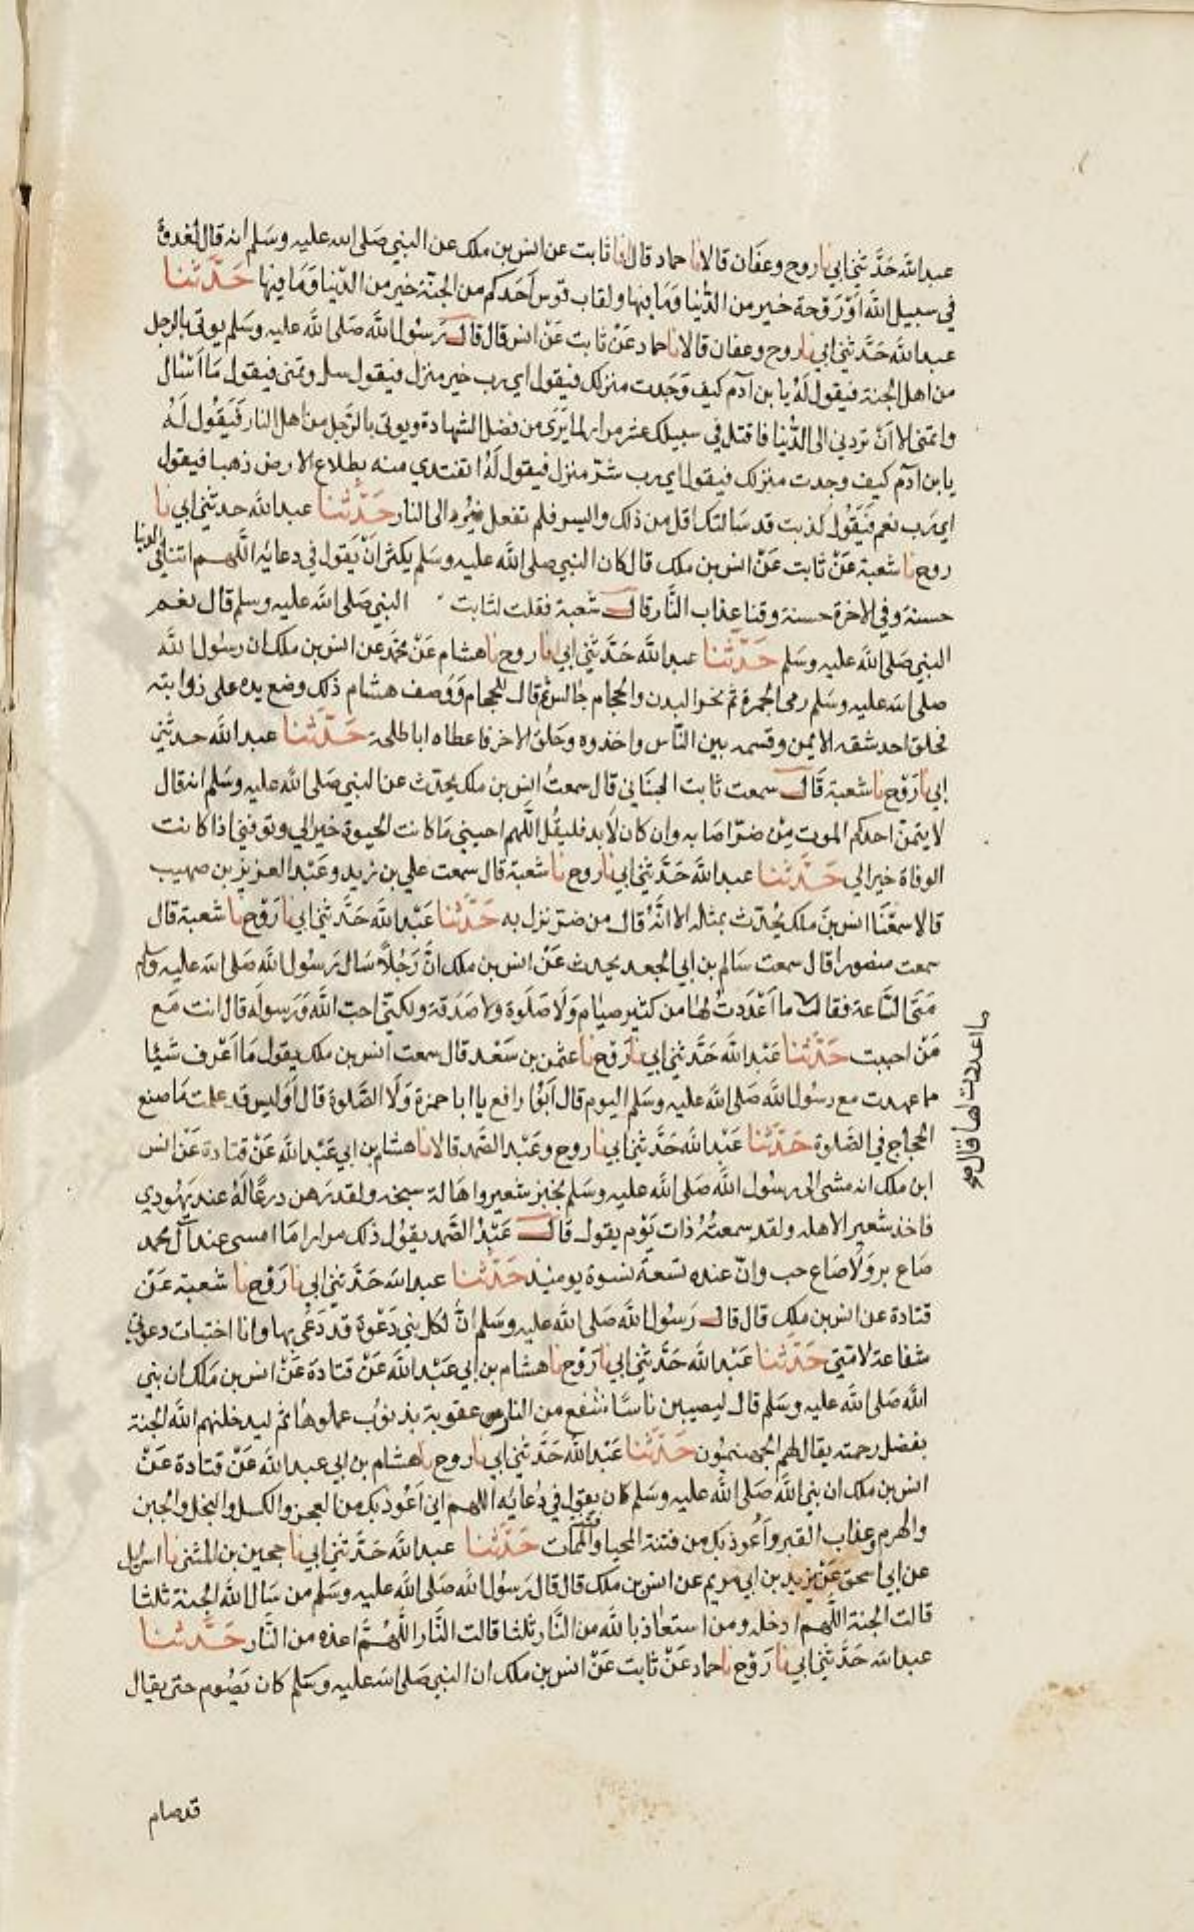 عبد الله حَدَّثني ابي نا روح وعفان قالا نا حماد قال انا ثابت عن انس بن ملك عن النبي صَلى الله عليه وسَلم انه قال لغدوة
في سبيل الله اوْ رَوحة خير من الدُّنيا وَمَا فيها ولقاب قوس اَحَدكم من الجنّة خير من الدّنيا وَمَا فيها حَدَّثنا
عبد الله حَدَّثني ابي نا روح وعفان قالا نا حماد عَنْ ثابت عَنْ انس قال قال رَسُول الله صَلى الله عليه وسَلم يوتى بالرجل
من اهل الجنة فيقول لَهُ يا بن آدم كيف وَجَدت منزلك فيقول اي رب خير منزل فيقول سل وتمنى فيقول مَا اَسْال
واتمنى الا اَنْ تردني الى الدُّنيا فاقتل في سبيلك عشر مرار لما يَرَى من فضل الشهادة ويوتى بالرَّجل من اهل النار فَيَقُول لَهُ
يا بن آدم كيف وجدت منزلك فيقول اي رب شرّ منزل فيقول لَهُ اتفتدي منه بطلاع الارض ذهبا فيقول
اي رَب نعم فَيَقُول كذبت قد سَالتك اقل من ذلك وايسر فلم تفعل فيُرد الى النار حَدَّثنا عبد الله حدثني ابي نا
روح نا شعبة عَنْ ثابت عَنْ انس بن ملك قال كان النبي صلى الله عليه وسَلم يكثر اَنْ يَقول في دعائه اللَّهم اتنا في الدنيا
حسنة وفي الاخرة حسنة وقنا عذاب النَّار قال شعبة فقلت لثابت النبي صَلى الله عليه وسلم قال نعم
النبي صَلى الله عليه وسَلم حَدَّثنا عبد الله حَدَّثني ابي نا روح نا هشام عَنْ محَمد عن انس بن ملك ان رسُول الله
صلى الله عليه وسَلم رمى الجمرة ثم نحر البدن والحجام جالس ثم قال للحجام وَوصف هشام ذلك وضع يده على ذوابته
فحلق احد شقه الايمن وقسمه بين النَّاس واخذوه وحَلق الاخر فاعطاه اباطلحة حَدَّثنا عبد الله حدثني
ابي نا رَوْح نا شعبة قَال سمعت ثابت البناني قال سمعتُ انس بن ملك يحدّث عن النبي صَلى الله عليه وسَلم انه قال
لا يتمنّ احدكم الموت مِن ضرّ اصَابه وان كان لا بد فليقُل اللَّهم احيني مَا كانت الحيوة خير الي وتوفني اذا كانت
الوفاة خير الي حَدَّثنا عبد الله حَدَّثني ابي نا روح نا شعبة قال سمعت علي بن زيد وعَبْد العزيز بن صهيب
قالا سمعَنَا انس بنَ ملك يُحدّث بمثله الا انَّهُ قال من ضرّ نزل به حَدَّثنا عَبْد الله حَدَّثني ابي نا رَوْح نا شعبة قال
سمعت منصورا قال سمعت سَالم بن ابي الجعد يحدث عَنْ انس بن ملك انَّ رَجُلاً سَال رَسُول الله صَلى الله عليه وسلم
مَتَى السَّاعة فقال ما اَعْدَدتُ لهَا من كثير صيام وَلَا صَلَوة ولا صَدَقة ولكنّي احب الله وَرَسوله قال انت مَع
مَنْ احببت حَدَّثنا عَبْد الله حَدَّثني ابي نا رَوْح نا عثمن بن سَعْد قال سمعت اَنس بن ملك يقول مَا اَعْرف شيئا
مما عهدت مع رسُول الله صَلى الله عليه وسَلم اليوم قال اَبُوْ رافع يا ابا حمزة وَلَا الصَّلوة قال اَوَليس قد علمت مَا صنع
الحجاج في الصَّلوة حَدَّثنا عَبْد الله حَدَّثني ابي نا روح وعَبْد الصَّمد قالا نا هشام بن ابي عَبْد الله عَنْ قتادة عَنْ انس
ابن ملك انه مشى الى رسُول الله صَلى الله عليه وسَلم بخبز شعير واهالة سبخة ولقد رَهن درعًا لَهُ عند يَهُودي
فاخذ شعير الاهله ولقد سمعتُهُ ذات يَوْم يقول قال عَبْدُ الصَّمد يقُول ذلك مرارا مَا امسى عند آل محمد
صَاع بر وَلَا صَاع حب وانّ عنده تسعة نسوة يوميذ حَدَّثنا عبد الله حَدَّثني ابي نا رَوْح نا شعبة عَنْ
قتادة عن انس بن ملك قال قال رَسُول الله صَلى الله عليه وسَلم انَّ لكل نبي دَعْوة قد دَعَى بها وانا اختبات دعوتي
شفاعة لامتي حَدَّثنا عَبْد الله حَدَّثني ابي نا رَوْح نا هشام بن ابي عَبْد الله عَنْ قتادة عَنْ انس بن مَلك ان نبي
الله صَلى الله عليه وسَلم قال ليصيبن ناسًا سَفع من النار عقوبة بذنوب عملوهَا ثم ليدخلنهم الله الجنة
بفضل رحمته يقال لهم الجهنميُّون حَدَّثنا عَبْد الله حَدَّثني ابي نا روح نا هشام بن ابي عبد الله عَنْ قتادة عَنْ
انس بن ملك ان نبي الله صَلى الله عليه وسَلم كان يقول في دعائه اللهم اني اَعُوذ بك من العجز والكسل والبخل والجبن
والهرم وعذاب القبر واَعُوذ بك من فتنة المحيا والممات حَدَّثنا عبد الله حَدَّثني ابي نا حجين بن المثنى نا اسرايل
عن ابي اسحق عَنْ بريد بن ابي مريم عن انس بن ملك قال قال رَسُول الله صَلى الله عليه وسَلم من سَال الله الجنة ثلثا
قالت الجنة اللَّهم ادخله ومن استعاذ بالله من النَّار ثلثا قالت النَّار اللَّهُمَّ اعذه من النَّار حَدَّثنا
عبد الله حَدَّثني ابي نا رَوْح نا حماد عَنْ ثابت عَنْ انس بن ملك ان النبي صَلى الله عليه وسَلم كان يَصُوم حتى يقال
ما اعددت لها قال
قد صام